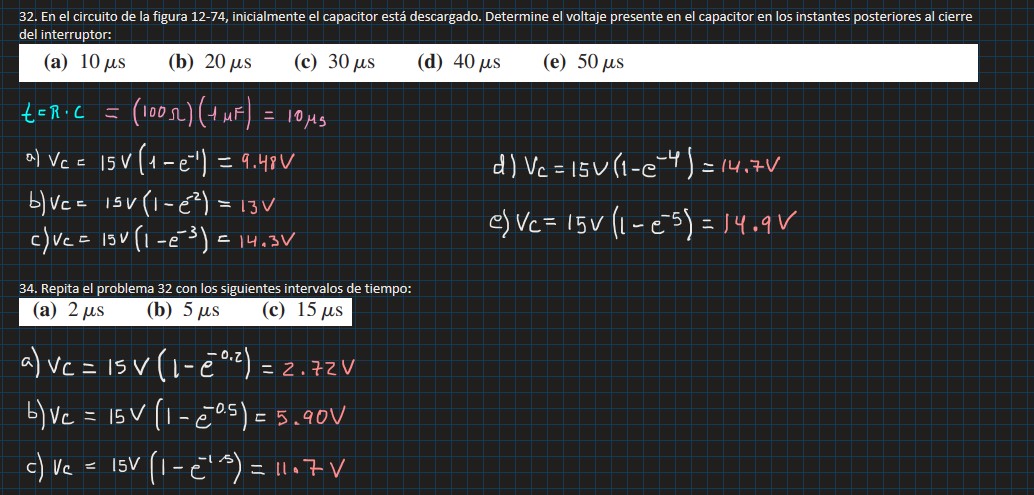 32. En el circuito de la figura 12-74, inicialmente el capacitor está descargado. Determine el voltaje presente en el capacitor en los instantes posteriores al cierre
del interruptor:
(a) 10 μs (b) 20 μs (c) 30 μs (d) 40 μs (e) 50 μs
t = R · C = (100 Ω)(1 μF) = 10 μs
a) Vc = 15 V (1 - e⁻¹) = 9.48 V
b) Vc = 15 V (1 - e⁻²) = 13 V
c) Vc = 15 V (1 - e⁻³) = 14.3 V
d) Vc = 15 V (1 - e⁻⁴) = 14.7 V
e) Vc = 15 V (1 - e⁻⁵) = 14.9 V
34. Repita el problema 32 con los siguientes intervalos de tiempo:
(a) 2 μs (b) 5 μs (c) 15 μs
a) Vc = 15 V (1 - e^-0.2) = 2.72 V
b) Vc = 15 V (1 - e^-0.5) = 5.90 V
c) Vc = 15 V (1 - e^-1.5) = 11.7 V